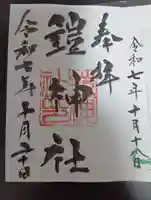 令和七年十月十八日
奉拝
鎧神社
令和七年十月十八日